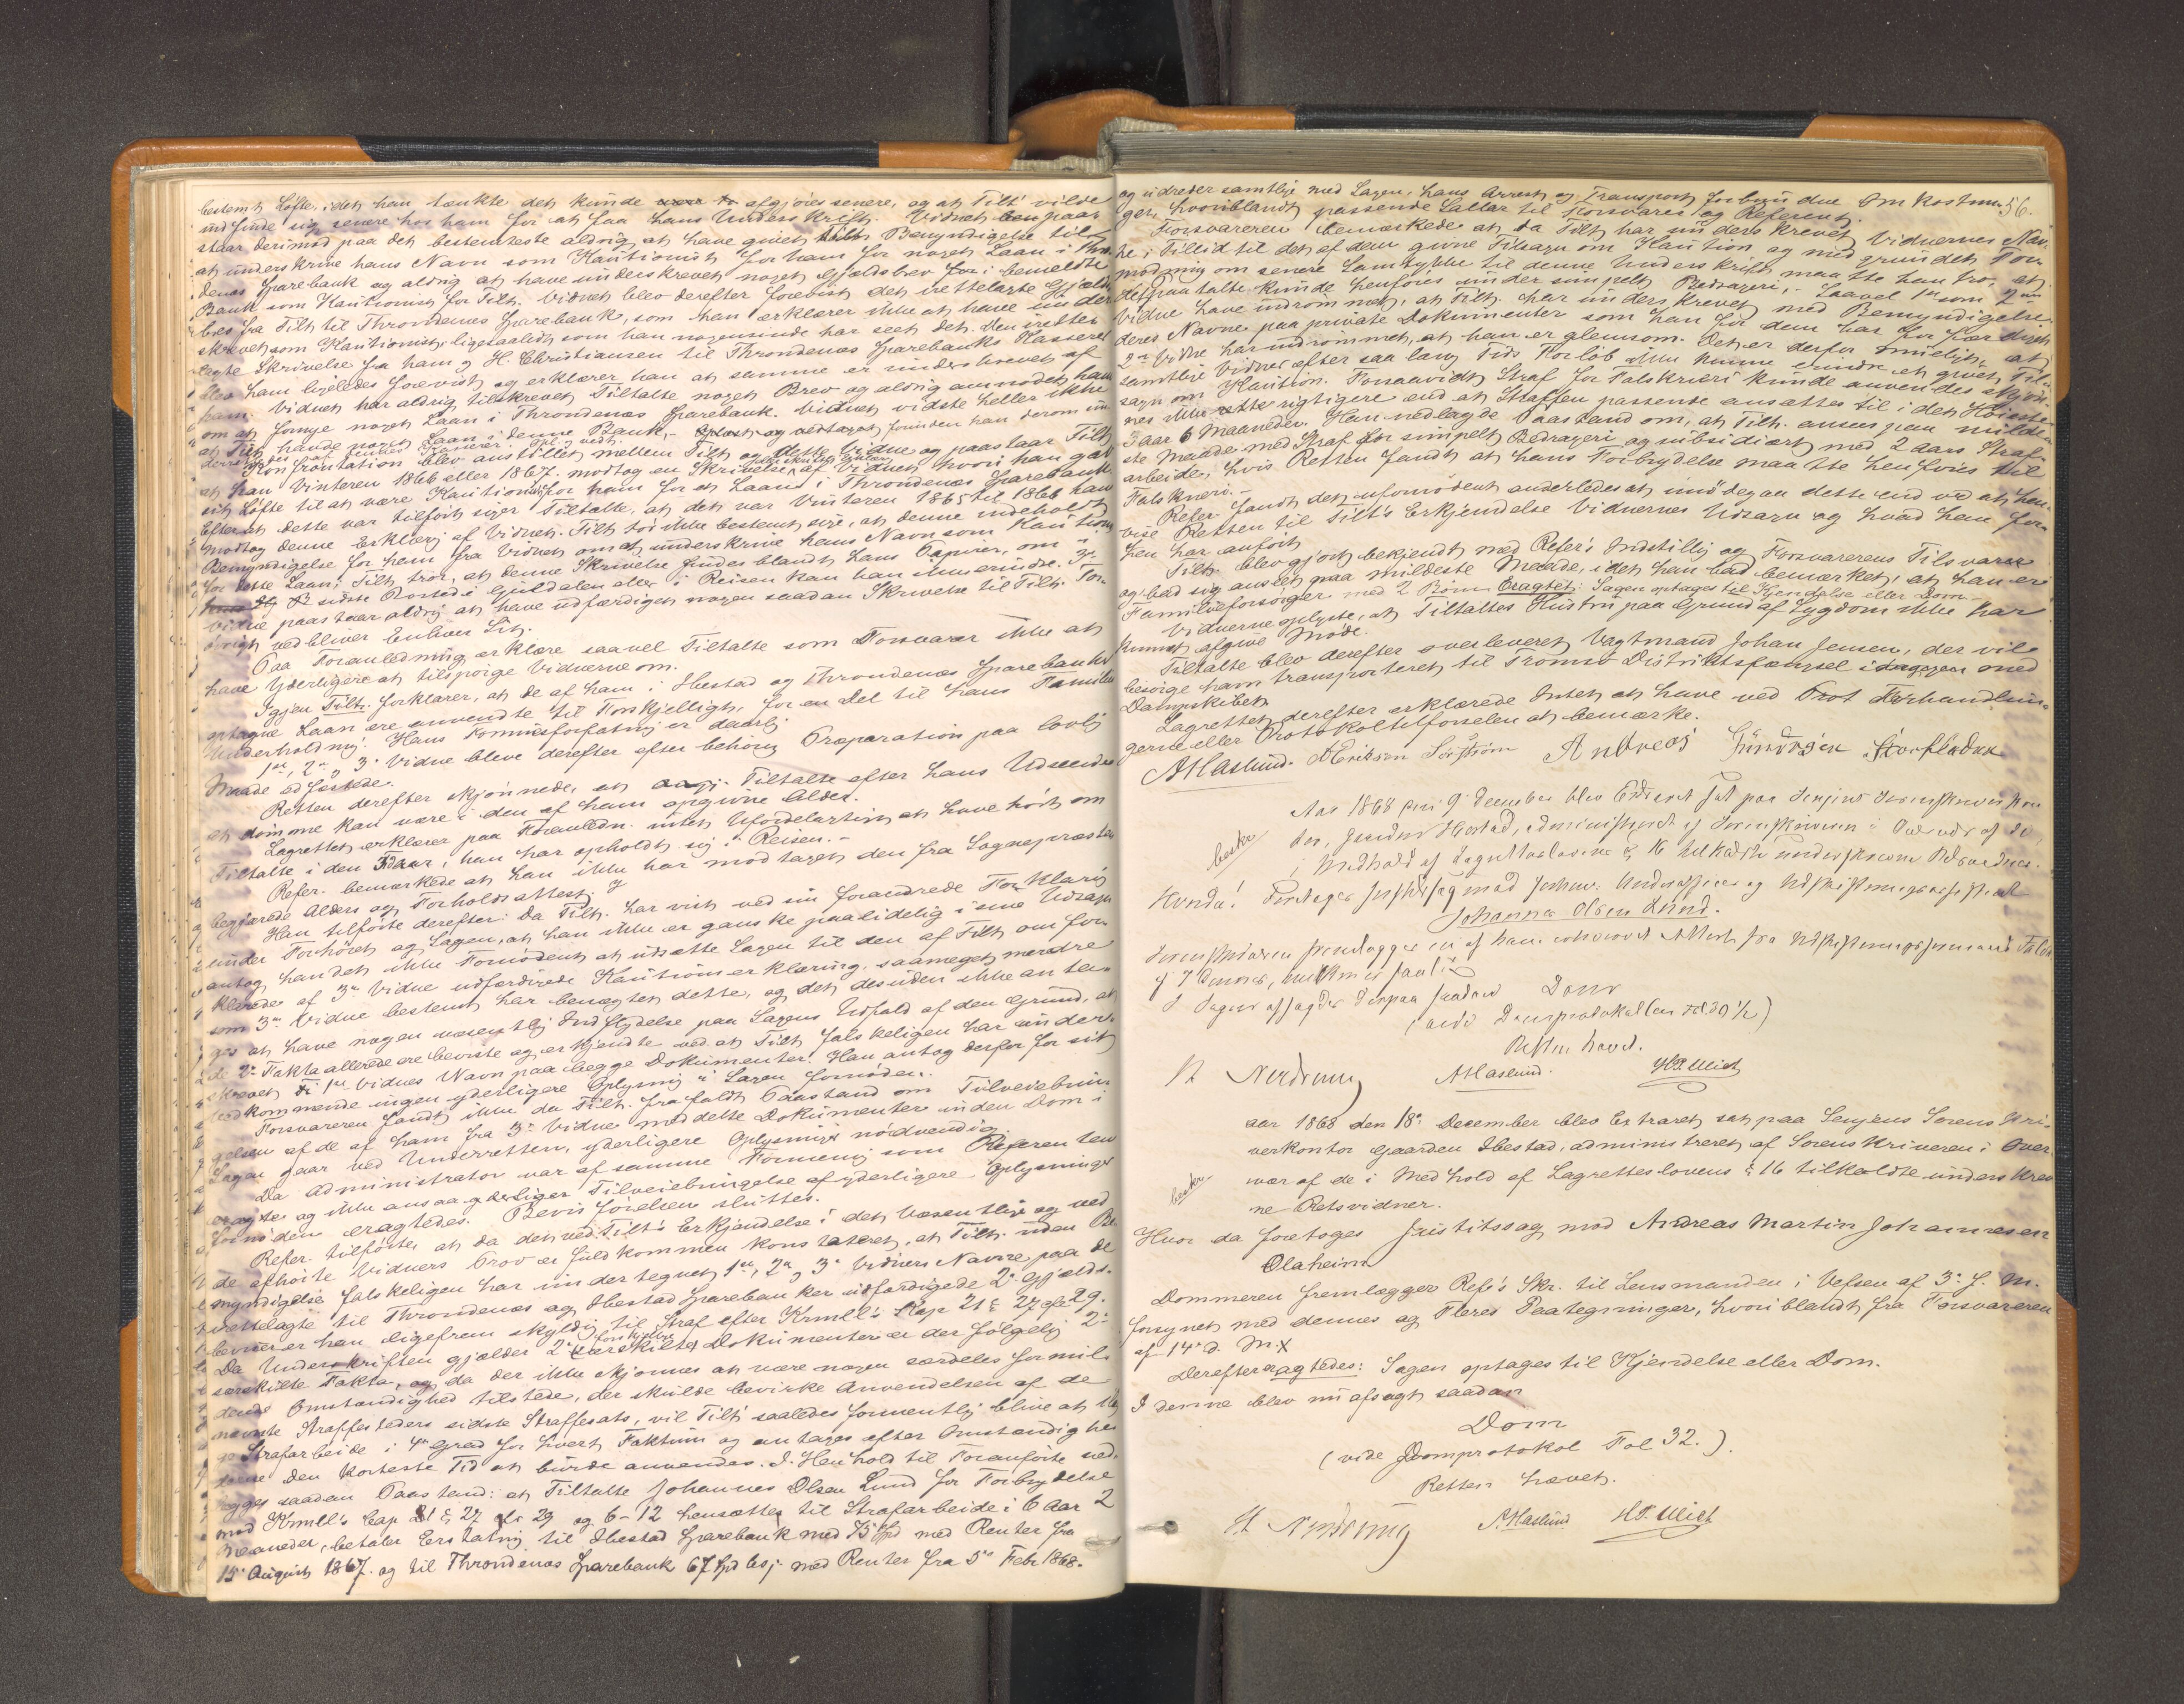 bestemt Løfte, idet han tænkte det kunde afgjøres senere, og at Tilt' vilde
indfinde sig senere hos ham for at faa hans Underskrift. Vidnet paa
staar derimod paa det bestemteste aldrig at have givet Tilt Bemyndigelse til
at underskrive hans Navn som Kautionist for ham for noget Laan i Thron
denæs Sparebank og aldrig at have underskrevet noget Gjældsbrev for i bemeldte
Bank som Kautionist for Tilt. Vidnet blev derefter forevist det irettelagte Gjælds
brev fra Tilt til Throndenæs Sparebank, som han erklærer ikke at have under
skrevet som Kautionist, ligesaalidt som han nogensinde har seet det. Den irette
lagte Skrivelse fra ham og H. Christiansen til Throndenæs Sparebanks Kasserer
blev ham ligeledes forevist og erklærer han at samme er underskrevet af
ham. Vidnet har aldrig tilskrevet Tiltalte noget Brev og aldrig anmodet ham
om at fornye noget Laan i Throndenæs Sparebank. Vidnet vidste heller ikke
at Tilt havde noget Laan i denne Bank, forinden han derom un
derrettedes af dennes Kasserer. Opl. og vedt.
Konfrontation blev anstillet mellem Tilt og dette Vidne og paastaar Tilt
at han Vinteren 1866 eller 1867 modtog en Skrivelse af Vidnet hvori han gav
sit Løfte til at være Kautionist for ham for et Laan i Throndenæs Sparebank
Efterat dette var tilført siger Tiltalte, at det var Vinteren 1865 til 1866 han
modtog denne Erklærg af Vidnet. Tilt tør ikke bestemt sige, at denne indeholdt
Bemyndigelse for ham fra Vidnet om at underskrive hans Navn som Kaution
for dette Laan; Tilt tror, at denne Skrivelse findes blandt hans Papirer, om i
sidste Bosted i Guldalen eller i Reisen kan han ikke erindre. 3die
Vidne paastaar aldrig at have udfærdiget nogen saadan Skrivelse til Tilt. For
øvrigt vedbliver Enhver Sit.
Paa Foranledning erklære saavel Tiltalte som Forsvarer ikke at
have Yderligere at tilspørge Vidnerne om.
Igjen Tilt. forklarer, at de af ham i Ibestad og Throndenæs Sparebanker
optagne Laan ere anvendte til Forskjelligt, for en Del til hans Familes
Underholdning. Hans Formuesforfatng er daarlig
1ste, 2det og 3die Vidne bleve derefter efter behørig Præparation paa lovlig
Maade edfæstede.
Retten derefter skjønnede, at Tiltalte efter hans Udseende
at dømme kan være i den af ham opgivne Alder.
Lagrettet erklærer paa Foranledn. intet Ufordelagtigt at have hørt om
Tiltalte i den Tid han har opholdt sig i Reisen.-
Refer. bemærkede at han ikke har modtaget den fra Sognepræsten
begjærede Alders og Forholdsattest.
Han tilførte derefter: Da Tilt. har vist ved sin forandrede Forklarg
under Forhøret og Sagen, at han ikke er ganske paalidelig i sine Udsagn
antog han det ikke Fornødent at udsætte Sagen til den af Tilt om for
klarede af 3die Vidne udfærdigede Kautionserklæring, saameget mere
som 3die Vidne bestemt har benægtet dette, og det desuden ikke an ta
ges at have nogen væsentlig Indflydelse paa Sagens Udfald af den Grund, at
de 2de Fakta allerede ere beviste og erkjendte ved at Tilt falskeligen har under
skrevet 1ste Vidnes Navn paa begge Dokumenter. Han antog derfor for sit
Vedkommende ingen yderligere Oplysning i Sagen fornøden.
Forsvareren fandt ikke da Tilt. frafaldt Paastand om Tilveiebrin
gelsen af de af ham fra 3die Vidne meddelte Dokumenter inden Dom i
Sagen gaar ved Underretten, yderligere Oplysning nødvendig.
Da Administrator var af samme Formening som Referenten
eragtes og ikke ansaa yderligere Tilveiebringelse af yderligere Oplysninger
fornøden eragtedes: Bevisførelsen sluttes.
Refer. tilførte, at da det ved Tilt's Erkjendelse i det Væsentlige og ved
de afhørte Vidners Prov er fuldkommen konstateret, at Tilt. uden Be
myndigelse falskeligen har undertegnet 1ste, 2det og 3die Vidners Navne paa de
irettelagte til Throndenæs og Ibestad Sparebanker udfærdigede 2de Gjælds-
beviser er han ligefrem skyldig til Straf efter Krmll's Kap 21 § 27 cfr 29.
Da Underskriften gjælder 2de forskjellige Dokumenter er der følgelig 2de
særskilte Fakta, og da der ikke skjønnes at være nogen særdeles formil
dende Omstændighed tilstede, der skulde bevirke Anvendelsen af de
nævnte Straffesteders sidste Straffesats, vil Tilt' saaledes formentlig blive at ilæg
ge Strafarbeide i 4de Grad for hvert Faktum og antages efter Omstændighe
derne den korteste Tid at burde anvendes. I Henhold til Foranførte ned
lægges saadan Paastand: at Tiltalte Johannes Olsen Lund for Forbrydelse
mod Krmll's Cap 21 § 27 cfr 29 og 6-12 hensættes til Strafarbeide i 6 Aar 2
Maaneder, betaler Erstatnig til Ibestad Sparebank med 75 Spd med Renter fra
15de August 1867 og til Throndenæs Sparebank 67 Spd med Renter fra 5te Febr 1868.
56.
og udreder samtlige med Sagen, hans Arrest og Transport forbundne Omkostnin
ger, hvoriblandt passende Sallær til Forsvarer og Referent.
Forsvareren bemærkede at da Tilt har underskrevet Vidnernes Nav
ne i Tillid til det af dem givne Tilsagn om Kaution og med grundet For
modning om senere Samtykke til denne Underskrift maatte han tro, at
det paatalte kunde henføres under simpelt Bedrageri,- Saavel 1ste som 2det
Vidne have indrømmet, at Tilt. har underskrevet med Bemyndigelse
deres Navne paa private Dokumenter som han for dem har forfærdiget
2det Vidne har indrømmet, at han er glemsom. Det er derfor muligt, at
samtlige Vidner efter saa lang Tids Forløb ikke kunne erindre et givet Til
sagn om Kaution. Forsaavidt Straf for Falskneri kunde anvendes skjøn
nes ikke rettere rigtigere end at Straffen passende ansættes til i det Høieste
3 Aar 6 Maaneder. Han nedlagde Paastand om, at Tilt. ansees paa milde
ste Maade med Straf for simpelt Bedrageri og subsidiært med 2 Aars Straf
arbeide, hvis Retten fandt at hans Forbrydelse maatte henføres til
Falskneri.-
Refer. fandt det ufornødent anderledes at imødegaa dette end ved at hen
vise Retten til Tilt's Erkjendelse Vidnernes Udsagn og hvad han for
hen har anført
Tilt. blev gjort bekjendt med Refer's Indstillig og Forsvarerens Tilsvar
og bad sig anseet paa mildeste Maade, idet han bad bemærket, at han er
Familieforsørger med 2 Børn Eragtet: Sagen optages til Kjendelse eller Dom.-
Vidnerne oplyste, at Tiltaltes Hustru paa Grund af Sygdom ikke har
kunnet afgive Møde.
Tiltalte blev derefter overleveret Vagtmand Johan Jensen, der vil
besørge ham transporteret til Tromsø Distriktsfængsel med
Dampskibet
Lagrettet derefter erklærede Intet at have ved Prot Forhandlin
gerne eller Protokoltilførselen at bemærke.
AHaslund. Eriksen Sørstrøm Andreas Gundersen Storfladnes
Aar 1868 den 9 December blev Extraret sat paa Senjens Sorenskriverkon
tor, Gaarden Ibestad, administreret af Sorenskriveren i Overvær af de
beskr
i Medhold af Lagrettesloven § 16 tilkaldte underskrevne Retsvidner.
Hvorda! Foretages Justitssag mod
Johannes Olsen Lund.
I Sagen afsagdes derpaa saadan Dom
(vide Domprotokollen Fol 30 1/2)
Retten hævet.
St Nerdrum AHaslund. HPMich
Aar 1868 den 18de December blev Extraret sat paa Senjens Sorenskri-
verkontor Gaarden Ibestad, administreret af Sorenskriveren i Over
vær af de i Medhold af Lagretteslovens § 16 tilkaldte underskrev
beskr
ne Retsvidner.
Hvor da foretoges Justitssag mod Andreas Martin Johannesen
Olaheim
Dommeren fremlægger Refs Skr. til Lensmanden i Vefsen af 3de f. M.
forsynet med dennes og Fleres Paategninger, hvoriblandt fra Forsvareren
af 14de d. M.
Derefter eragtedes: Sagen optages til Kjendelse eller Dom.
I denne blev nu afsagt saadan
Dom
(vide Domprotokol Fol 32.).
Retten hævet.
St Nerdrum AHaslund HPMich